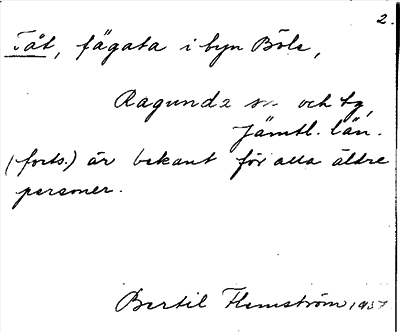 2.
Tåt, fägata i byn Böle,
Ragunda sn och tg,
Jämtl. län.
(forts.) är bekant för alla äldre
personer.
Bertil Flemström 1957